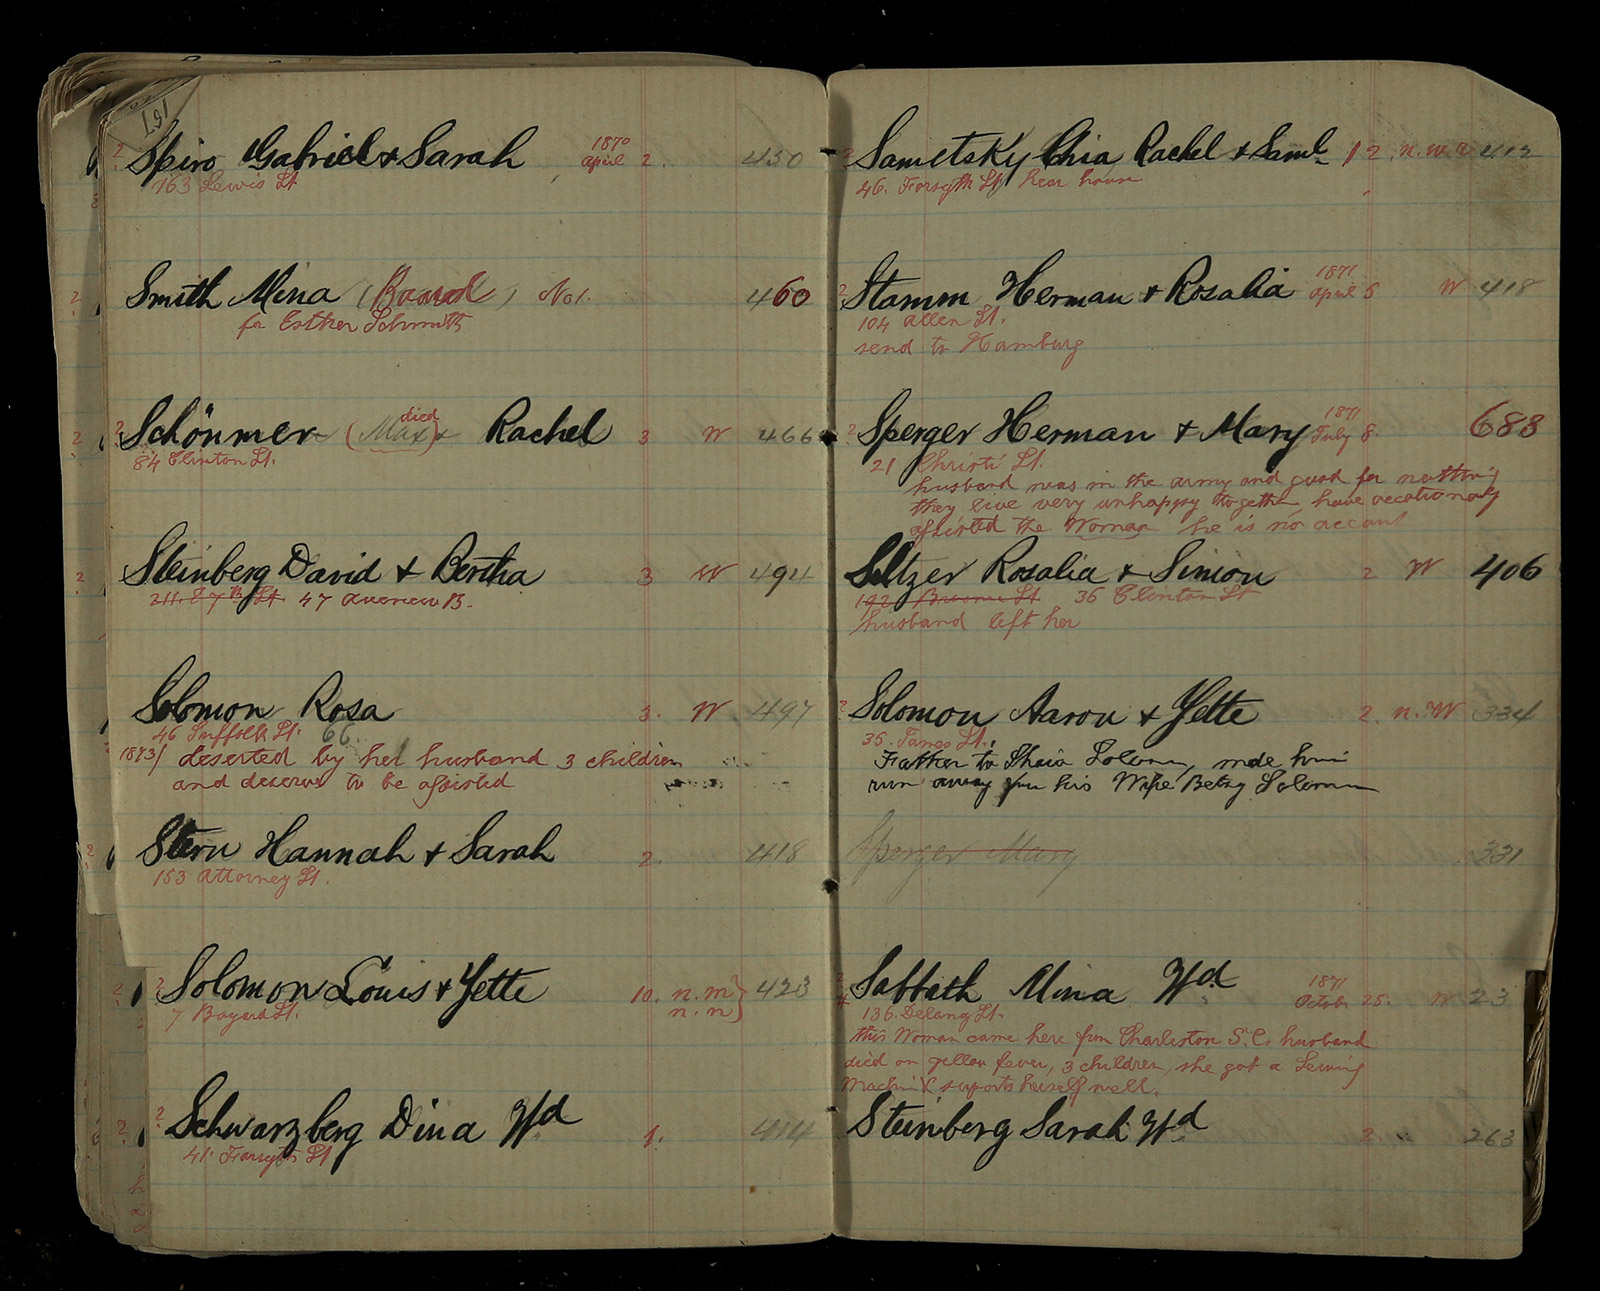 157
2 Spiro Gabriel & Sarah 1870 April 2. 450
163 Lewis St
Smith Mina (Board) No 1. 460
for Esther Schmith
2 Schönmer (Max died) & Rachel 3 W 466
84 Clinton St.
Steinberg David & Bertha 3 W 494
211. E 7th St. 47 Avenue B.
Solomon Rosa 3. W 497
46 Suffolk St. 66
1873) deserted by her husband 3 children
and deserves to be assisted
Stern Hannah & Sarah 2. 418
153 Attorney St.
2 Solomon Louis & Yette 10. n. m } 423
7 Bayard St. n. n }
2 Schwarzberg Dina Wd 1. 414
41 Forsyth St
2 Sametsky Chia Rachel & Saml 12. n. w. 412
46. Forsyth St, Rear house
2 Stamm Herman & Rosalia 1871 April 5 W 418
104 Allen St.
send to Hamburg
2 Sperger Herman & Mary 1871 July 8. 688
21 Christi St.
husband was in the army and good for nothing
they live very unhappy together, have occationaly
assisted the Woman he is no account
Seltzer Rosalia & Simion 2 W 406
192 Broome St 36 Clinton St
husband left her
2 Solomon Aaron & Yette 2. n. W 334
35. James St.
Father to Shaia Solomon, made him
run away from his Wife Betsy Solomon
Sperger Mary 331
2 Sabbath Mina Wd. 1871 October 25. W 23
136. Delancy St.
this Woman came here from Charleston S. C. husband
died on yellow fever, 3 children, she got a Sewing
Machine supports herself well.
Steinberg Sarah Wd 2 263